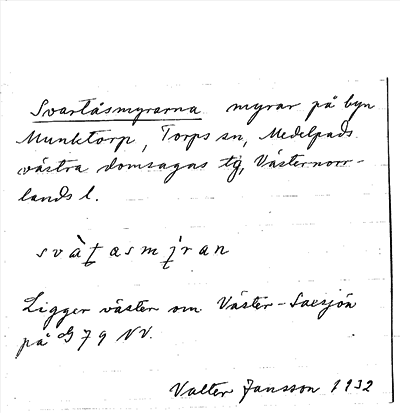 Svartåsmyrarna myrar på byn
Munktorp, Torps sn, Medelpads
västra domsagas tg, Västernorr-
lands l.
svàṭasmịran
Ligger väster om Väster-Saxsjön
på G 79 NV.
Valter Jansson 1932